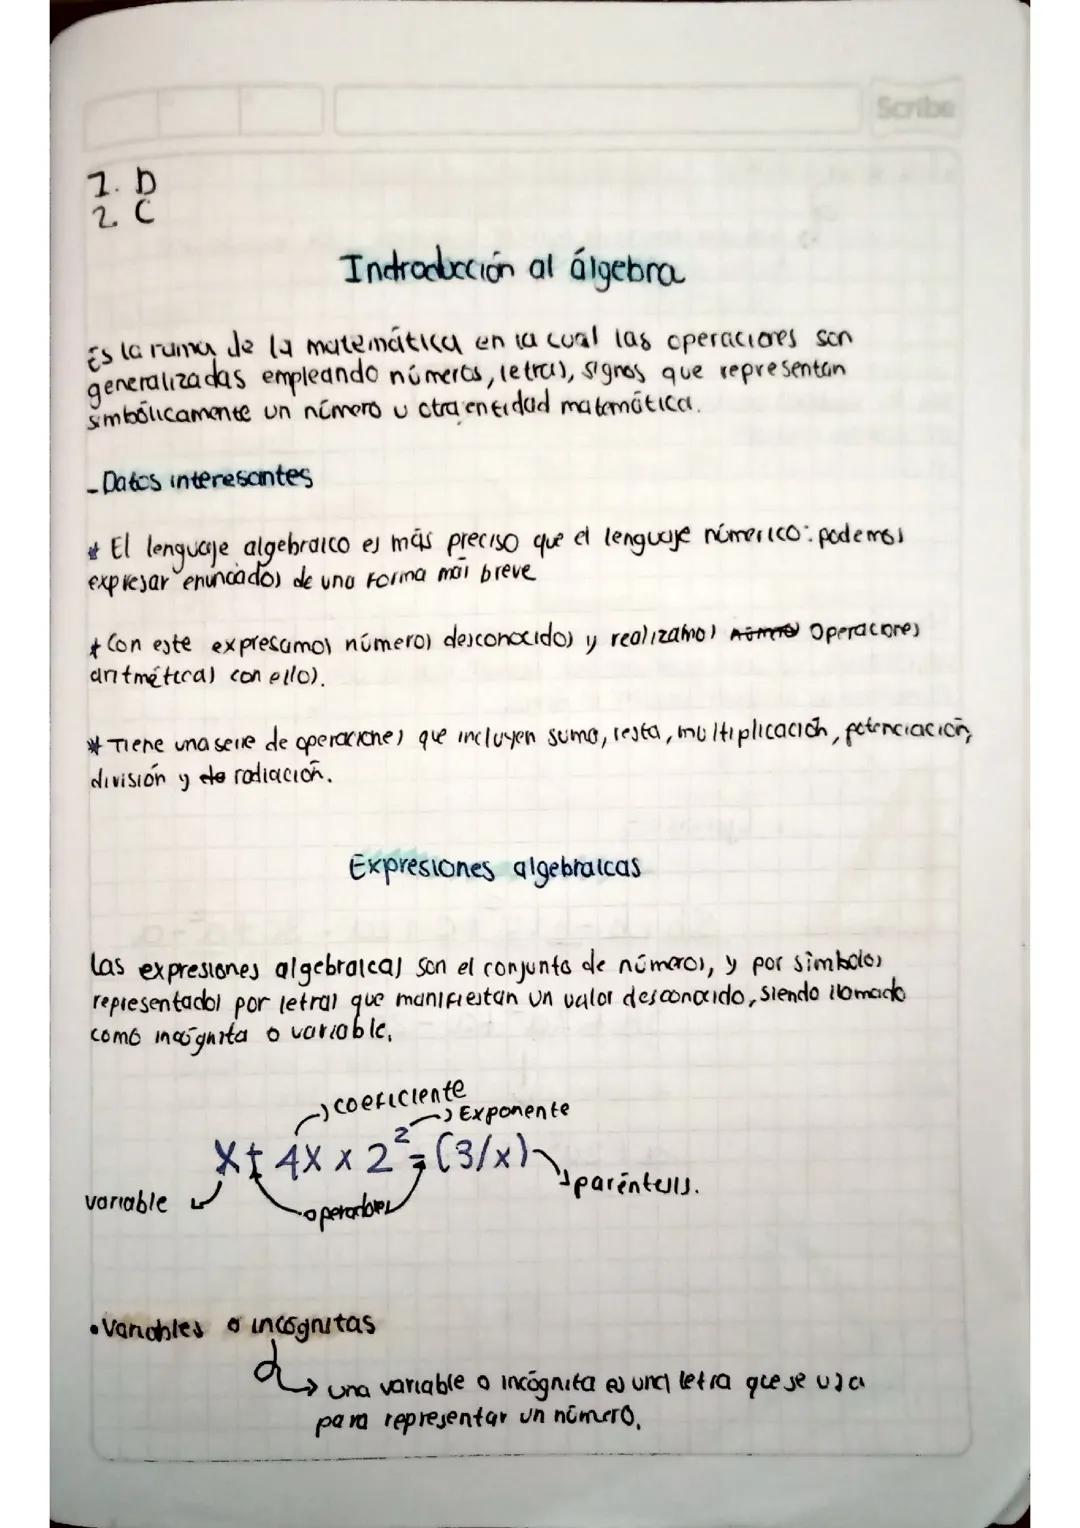 Scribe
1. D
2. C
Indroducción al álgebra
Es la rama de la matemática en la cual las operaciones son
generalizadas empleando números, letras, signos que representan
simbólicamente un número u otra entidad matemática.
- Datos interesantes
* El lenguaje algebraico es más preciso que el lenguaje númerico: podemos
expresar enunciados de una forma mas breve
* Con este expresamos números desconocidos y realizamos número operaciones
aritméticas con ellos.
* Tiene una serie de operaciones que incluyen suma, resta, multiplicación, potenciación,
división y de radiación.
Expresiones algebraicas
las expresiones algebraicas son el conjunto de números, y por simbolos
representados por letras que manifiestan un valor desconocido, siendo llamado
como incógnita o variable.
coeficiente
Exponente
X + 4X x 2² = (3/x)
paréntesis.
variable
operadores
• Variables o incógnitas
una variable o incógnita es una letra que se usa
para representar un número.